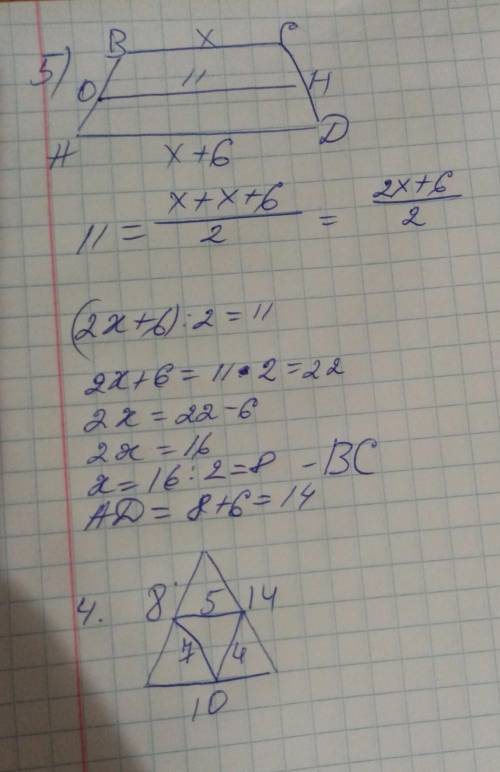 5)
B x C
O 11 H
A x+6 D
11 = (x+x+6)/2 = (2x+6)/2
(2x+6):2=11
2x+6=11·2=22
2x=22-6
2x=16
x=16:2=8 -BC
AD=8+6=14
4.
8 5 14
7 4
10